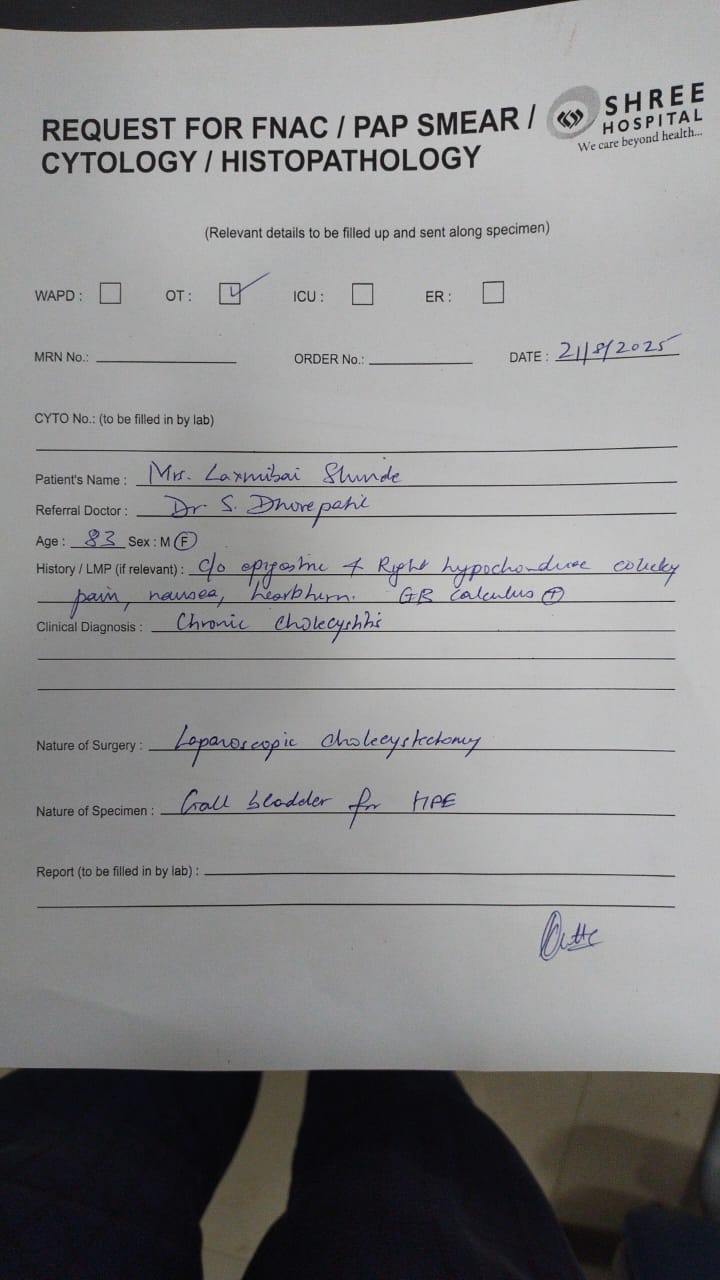 SHREE
HOSPITAL
We care beyond health...
REQUEST FOR FNAC / PAP SMEAR /
CYTOLOGY / HISTOPATHOLOGY
(Relevant details to be filled up and sent along specimen)
WAPD : OT : ICU : ER :
MRN No.: ORDER No.: DATE : 21/8/2025
CYTO No.: (to be filled in by lab)
Patient's Name : Mrs. Laxmibai Shinde
Referral Doctor : Dr. S. Dhorepatil
Age : 83 Sex : M F
History / LMP (if relevant) : c/o epigastric & Right hypochondriac colicky
pain, nausea, heartburn. GB calculus +
Clinical Diagnosis : Chronic cholecystitis
Nature of Surgery : Laparoscopic cholecystectomy
Nature of Specimen : Gall bladder for HPE
Report (to be filled in by lab) :